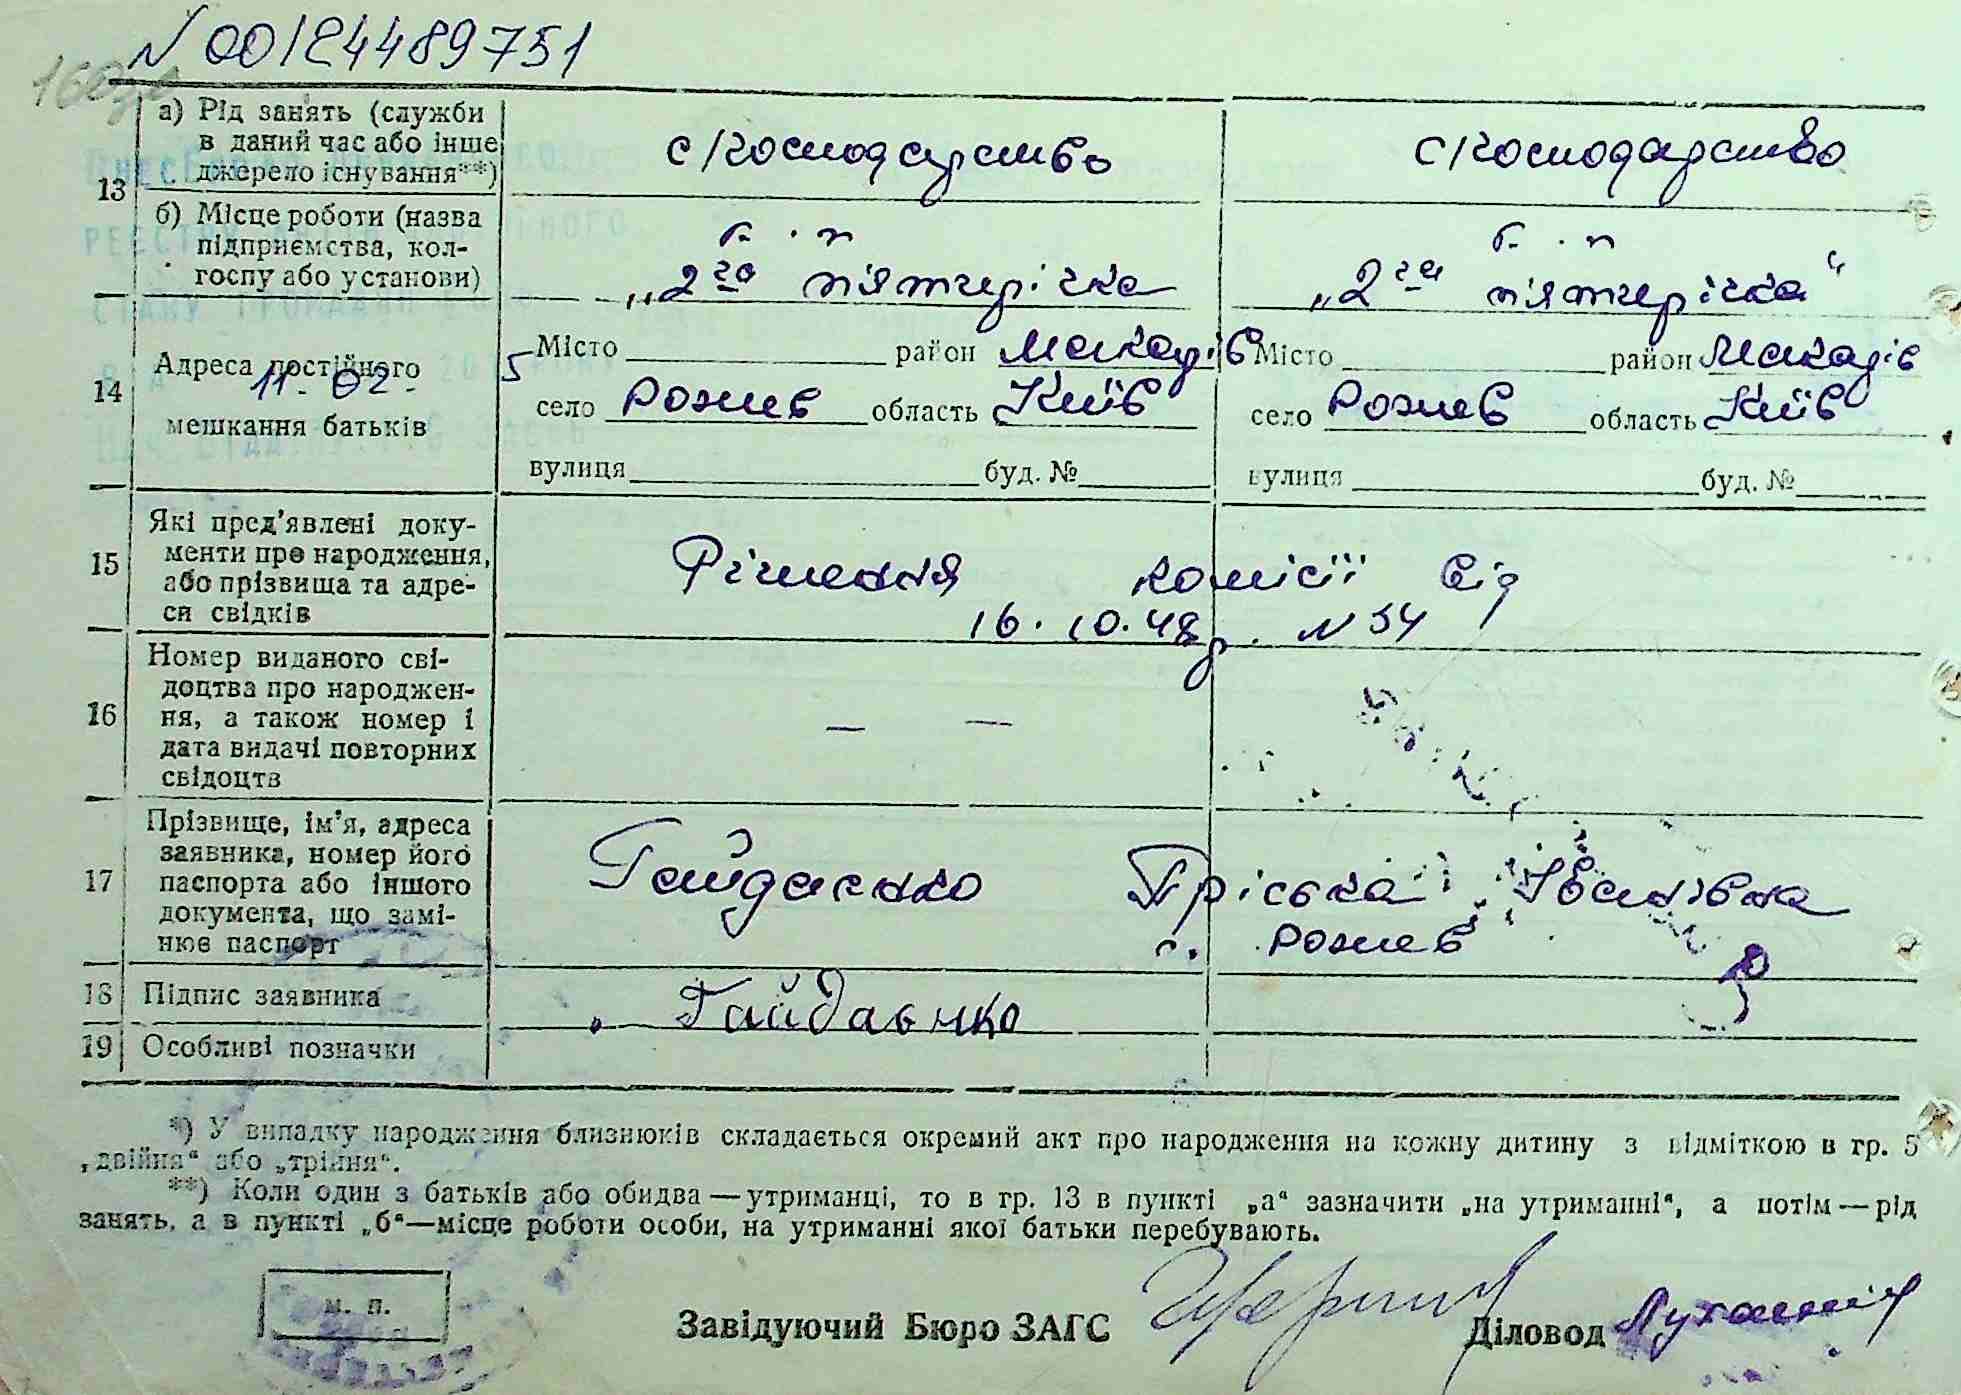 N 00124489751
13 а) Рід занять (служби в даний час або інше джерело існування**)
с/господарство с/господарство
б) Місце роботи (назва підприємства, колгоспу або установи)
к. г. п к. г. п
„2га п'ятирічка „2га п'ятирічка“
14 Адреса постійного мешкання батьків
11-02-
Місто район Макарів Місто район Макарів
село Рожев область Київ село Рожев область Київ
вулиця буд. № вулиця буд. №
15 Які пред'явлені документи про народження, або прізвища та адреси свідків
Рішення комісії від
16.10.48 р. N 34
16 Номер виданого свідоцтва про народження, а також номер і дата видачі повторних свідоцтв
— —
17 Прізвище, ім'я, адреса заявника, номер його паспорта або іншого документа, що замінює паспорт
Гайдаєнко Пріська Іванівна
с. Рожев
18 Підпис заявника
Гайдаєнко
19 Особливі позначки
*) У випадку народження близнюків складається окремий акт про народження на кожну дитину з відміткою в гр. 5
„двійня“ або „трійня“.
**) Коли один з батьків або обидва — утриманці, то в гр. 13 в пункті „а“ зазначити „на утриманні“, а потім — рід
занять, а в пункті „б“—місце роботи особи, на утриманні якої батьки перебувають.
м. п.
Завідуючий Бюро ЗАГС Діловод